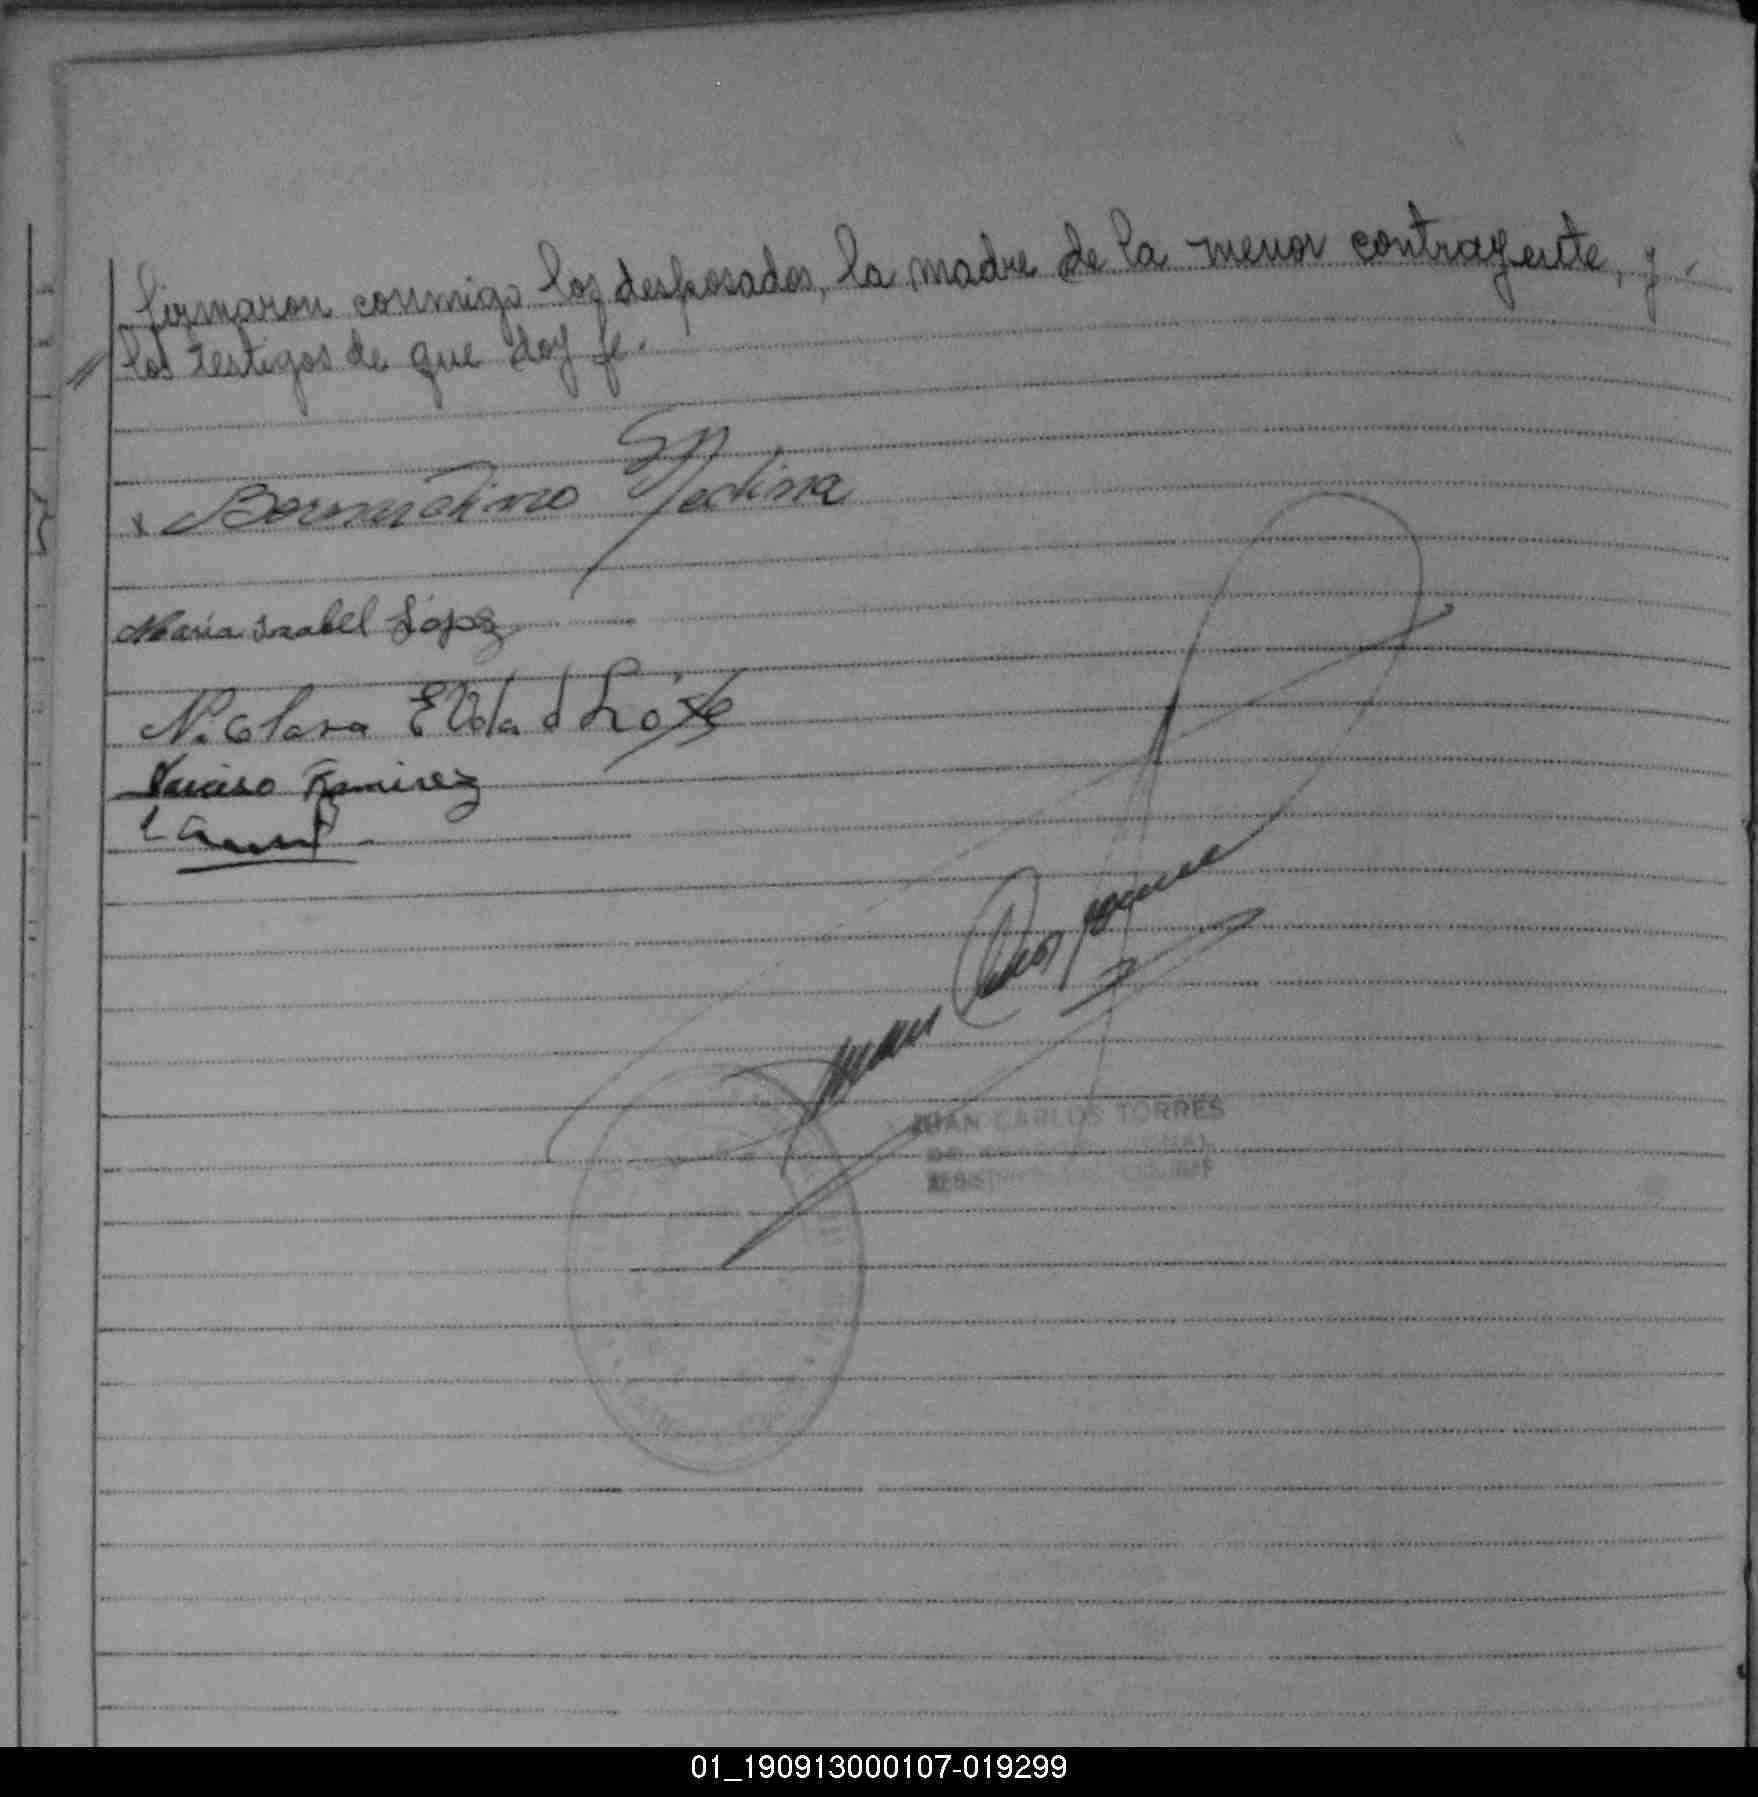 firmaron conmigo los desposados, la madre de la menor contrayente, y
los testigos de que doy fe.
x Bernardino Medina
Maria Isabel López
N. Clara Elda d López
Narciso Ramirez
Juan Carlos
JUAN CARLOS TORRES
01_190913000107-019299